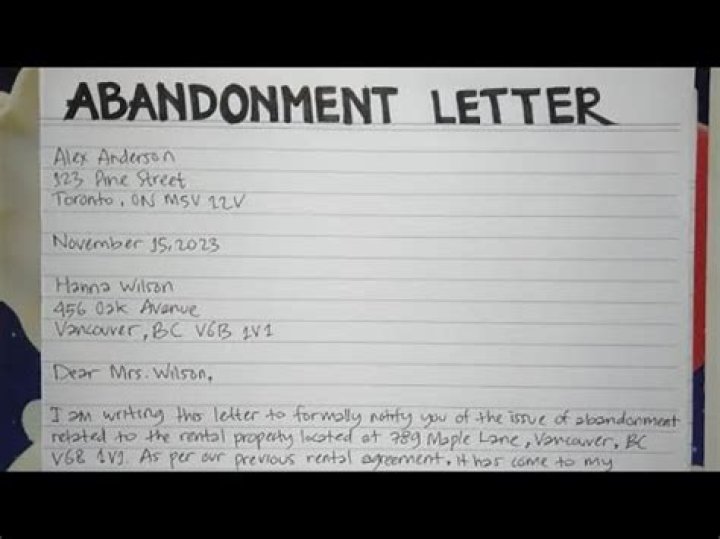 ABANDONMENT LETTER
Alex Anderson
123 Pine Street
Toronto, ON M5V 12V
November 15, 2023
Hanna Wilson
456 Oak Avenue
Vancouver, BC V6B 1V1
Dear Mrs. Wilson,
I am writing this letter to formally notify you of the issue of abandonment
related to the rental property located at 789 Maple Lane, Vancouver, BC
V6B 1V9. As per our previous rental agreement, it has come to my